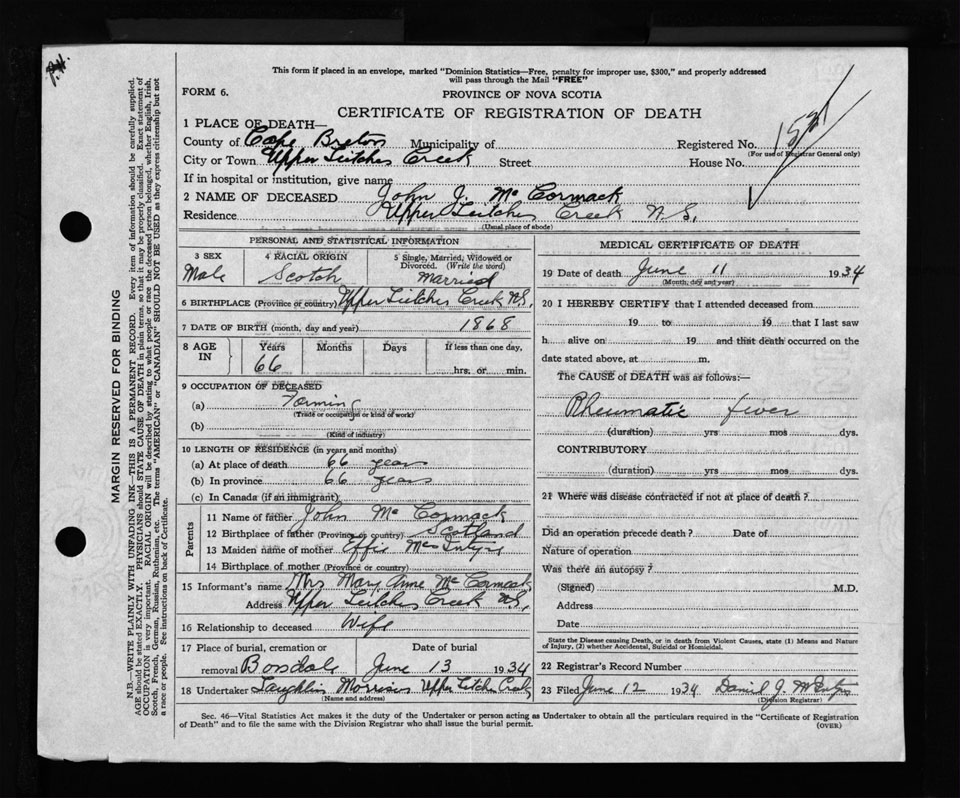 This form if placed in an envelope, marked "Dominion Statistics—Free, penalty for improper use, $300," and properly addressed
will pass through the Mail "FREE"
FORM 6.
PROVINCE OF NOVA SCOTIA
CERTIFICATE OF REGISTRATION OF DEATH
1 PLACE OF DEATH—
County of Cape Breton Municipality of Registered No.
(For use of Registrar General only)
City or Town Upper Leitches Creek Street House No.
If in hospital or institution, give name
2 NAME OF DECEASED John J. Mc Cormack
Residence Upper Leitches Creek N.S.
(Usual place of abode)
PERSONAL AND STATISTICAL INFORMATION
3 SEX 4 RACIAL ORIGIN 5 Single, Married, Widowed or
Divorced. (Write the word)
Male Scotch Married
6 BIRTHPLACE (Province or country) Upper Leitches Creek N.S.,
7 DATE OF BIRTH (month, day and year) 1868
8 AGE IN Years Months Days If less than one day,
66 hrs. or min.
9 OCCUPATION OF DECEASED
(a) Farming
(Trade or occupation or kind of work)
(b)
(Kind of industry)
10 LENGTH OF RESIDENCE (in years and months)
(a) At place of death 66 years
(b) In province 66 years
(c) In Canada (if an immigrant)
Parents
11 Name of father John Mc Cormack
12 Birthplace of father (Province or country) Scotland
13 Maiden name of mother Effie Mac Intyre
14 Birthplace of mother (Province or country)
15 Informant's name Mrs Mary Anne Mc Cormack
Address Upper Leitches Creek N.S,
16 Relationship to deceased Wife
17 Place of burial, cremation or Date of burial
removal Boisdale June 13 1934
18 Undertaker Laughlin Morrison Upper Leitches
(Name and address)
MEDICAL CERTIFICATE OF DEATH
19 Date of death June 11 1934
(Month, day and year)
20 I HEREBY CERTIFY that I attended deceased from
19 to 19 that I last saw
h alive on 19 and that death occurred on the
date stated above, at m.
The CAUSE of DEATH was as follows:—
Rheumatic fever
(duration) yrs mos dys.
CONTRIBUTORY
(duration) yrs mos dys.
21 Where was disease contracted if not at place of death?
Did an operation precede death? Date of
Nature of operation
Was there an autopsy?
(Signed) M.D.
Address
Date
State the Disease causing Death, or in death from Violent Causes, state (1) Means and Nature
of Injury, (2) whether Accidental, Suicidal or Homicidal.
22 Registrar's Record Number
23 Filed June 12 1934 Daniel J. McIntyre
(Division Registrar)
Sec. 46—Vital Statistics Act makes it the duty of the Undertaker or person acting as Undertaker to obtain all the particulars required in the "Certificate of Registration
of Death" and to file the same with the Division Registrar who shall issue the burial permit.
(OVER)
MARGIN RESERVED FOR BINDING
N.B.—WRITE PLAINLY WITH UNFADING INK—THIS IS A PERMANENT RECORD. Every item of information should be carefully supplied.
AGE should be stated EXACTLY. PHYSICIANS should STATE CAUSE OF DEATH in plain terms, so that it may be properly classified. Exact statement of
OCCUPATION is very important. RACIAL ORIGIN will be described by stating to what people or race the deceased person belonged, whether English, Irish,
Scotch, French, German, Russian, Ruthenian, etc. The terms "AMERICAN" or "CANADIAN" SHOULD NOT BE USED as they express citizenship but not
a race or people. See instructions on back of Certificate.